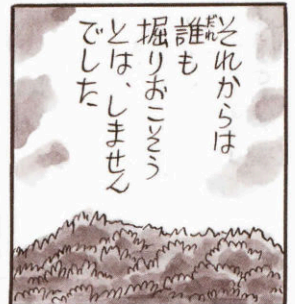 それからは
誰も
掘りおこそう
とは、しません
でした